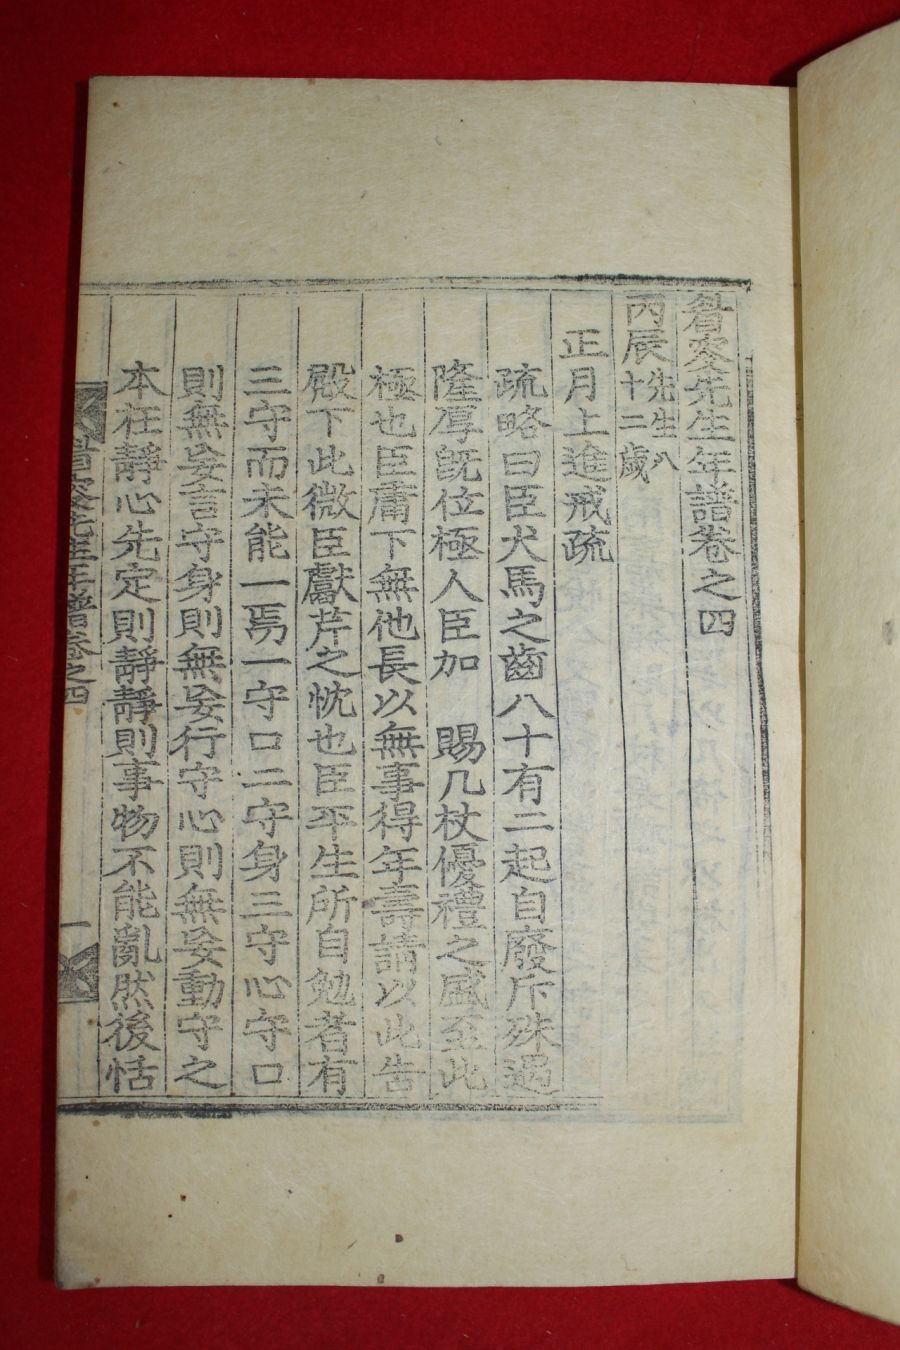 眷叟先生年譜卷之四
丙辰先生八十二歲
正月上進戒疏
疏略曰臣犬馬之齒八十有二起自廢斥殊遇
隆厚旣位極人臣加　賜几杖優禮之盛至此
極也臣庸下無他長以無事得年壽請以此告
殿下此微臣獻芹之忱也臣平生所自勉者有
三守而未能一焉一守口二守身三守心守口
則無妄言守身則無妄行守心則無妄動守之
本在靜心先定則靜靜則事物不能亂然後恬
眷叟先生年譜卷之四
一